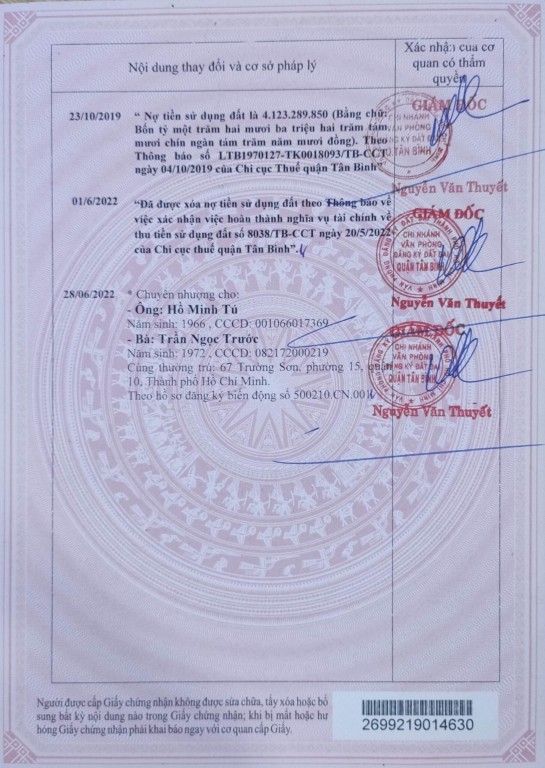 Nội dung thay đổi và cơ sở pháp lý
Xác nhận của cơ
quan có thẩm
quyền
23/10/2019
“ Nợ tiền sử dụng đất là 4.123.289.850 (Bằng chữ:
Bốn tỷ một trăm hai mươi ba triệu hai trăm tám
mươi chín ngàn tám trăm năm mươi đồng). Theo
Thông báo số LTB1970127-TK0018093/TB-CCT
ngày 04/10/2019 của Chi cục Thuế quận Tân Bình”
GIÁM ĐỐC
CHI NHÁNH
VĂN PHÒNG
ĐĂNG KÝ ĐẤT ĐAI
QUẬN TÂN BÌNH
Nguyễn Văn Thuyết
01/6/2022
“Đã được xóa nợ tiền sử dụng đất theo Thông báo về
việc xác nhận việc hoàn thành nghĩa vụ tài chính về
thu tiền sử dụng đất số 8038/TB-CCT ngày 20/5/2022
của Chi cục thuế quận Tân Bình”.
GIÁM ĐỐC
CHI NHÁNH
VĂN PHÒNG
ĐĂNG KÝ ĐẤT ĐAI
QUẬN TÂN BÌNH
Nguyễn Văn Thuyết
28/06/2022
* Chuyển nhượng cho:
- Ông: Hồ Minh Tú
Năm sinh: 1966 , CCCD: 001066017369
- Bà: Trần Ngọc Trước
Năm sinh: 1972 , CCCD: 082172000219
Cùng thường trú: 67 Trường Sơn, phường 15, quận
10, Thành phố Hồ Chí Minh.
Theo hồ sơ đăng ký biến động số 500210.CN.001
GIÁM ĐỐC
CHI NHÁNH
VĂN PHÒNG
ĐĂNG KÝ ĐẤT ĐAI
QUẬN TÂN BÌNH
Nguyễn Văn Thuyết
Người được cấp Giấy chứng nhận không được sửa chữa, tẩy xóa hoặc bổ
sung bất kỳ nội dung nào trong Giấy chứng nhận; khi bị mất hoặc hư
hỏng Giấy chứng nhận phải khai báo ngay với cơ quan cấp Giấy.
2699219014630